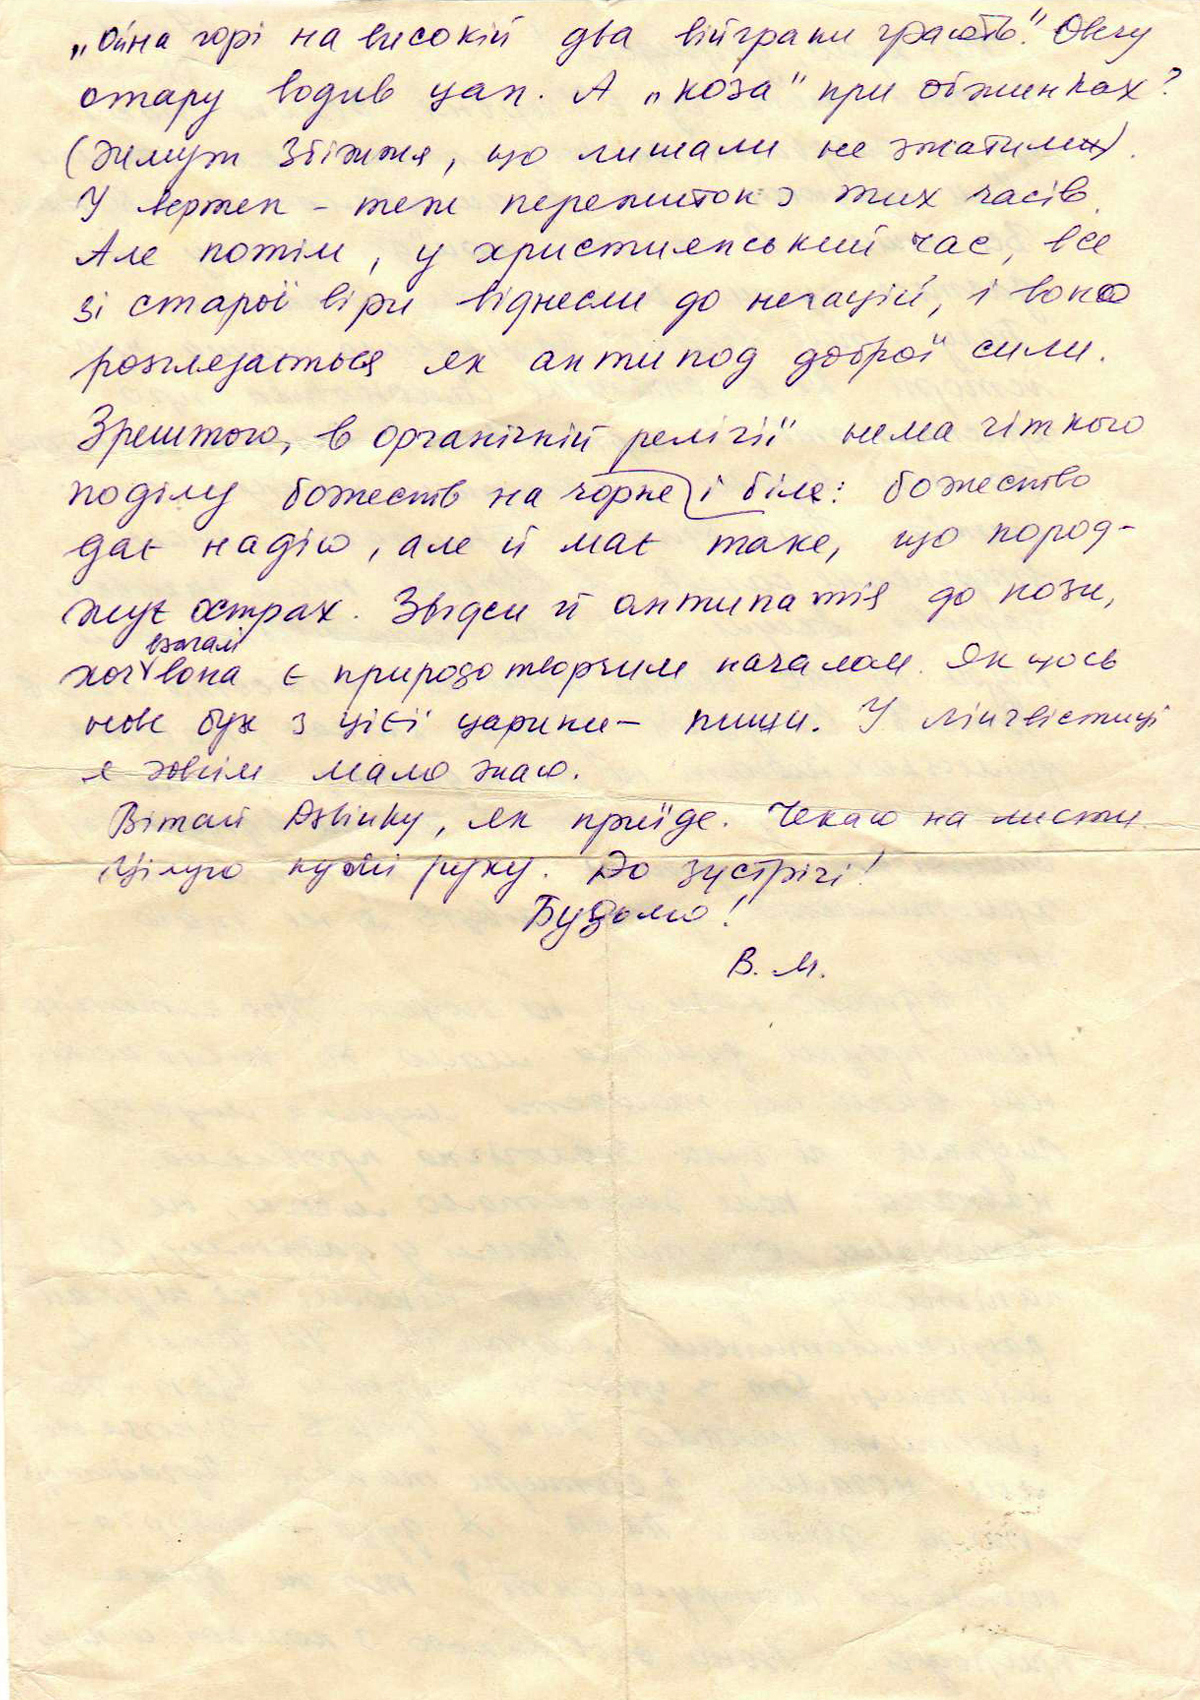 „Ой на горі на високій два війграки грають." Овечу
отару водив цап. А „коза" при обжинках?
(жмут збіжжя, що лишали не жатим).
У вертеп – теж пережиток з тих часів.
Але потім, у християнський час, все
зі старої віри віднесли до негацій, і воно
розглядається як антипод доброї сили.
Зрештою, в органічній релігії нема чіткого
поділу божеств на чорне і біле: божество
дає надію, але й має таке, що пород-
жує острах. Звідси й антипатія до кози,
хоч взагалі вона є природотворчим началом. Як щось
нове буде з цієї царини – пиши. У лінгвістиці
я зовсім мало знаю.
Вітай Дзвінку, як приїде. Чекаю на листи.
Цілую руку. До зустрічі!
Будьмо!
В. М.